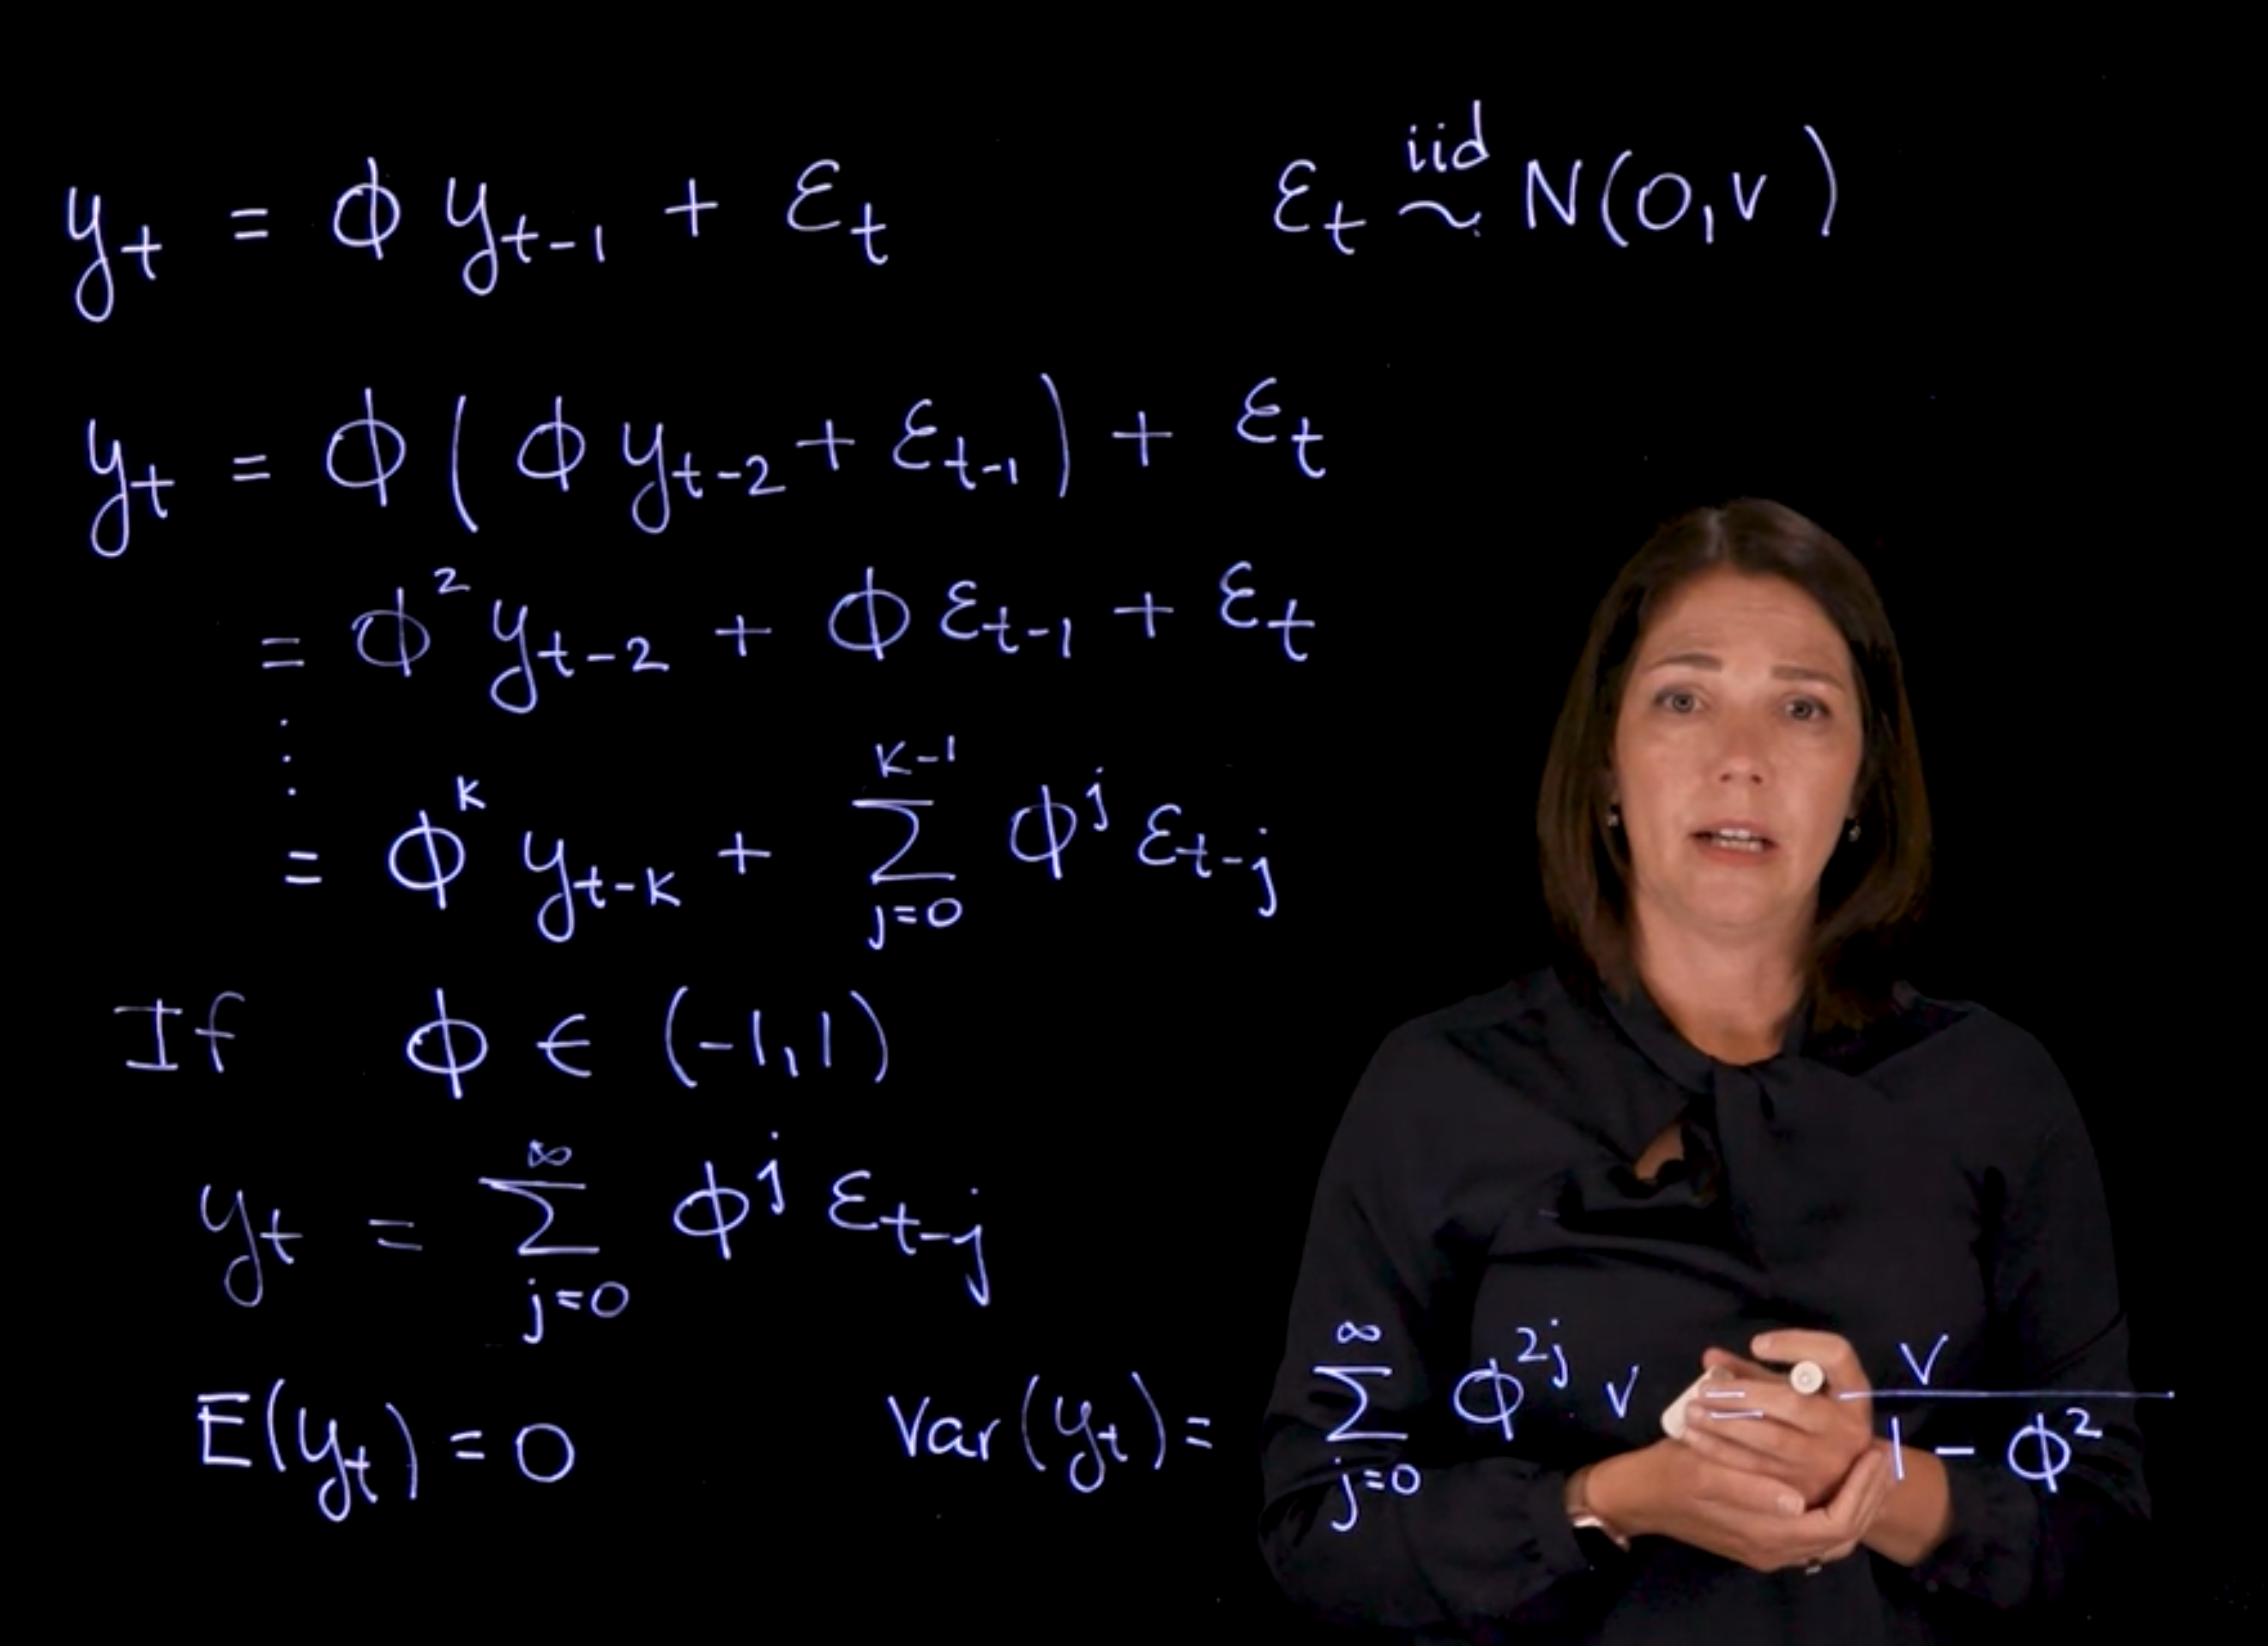 yₜ = ϕ yₜ₋₁ + εₜ    εₜ ~ⁱⁱᵈ N(0, v)
yₜ = ϕ(ϕ yₜ₋₂ + εₜ₋₁) + εₜ
= ϕ² yₜ₋₂ + ϕ εₜ₋₁ + εₜ
⋮
= ϕᵏ yₜ₋ₖ + ∑_{j=0}^{k-1} ϕʲ εₜ₋ⱼ
If ϕ ∈ (-1, 1)
yₜ = ∑_{j=0}^{∞} ϕʲ εₜ₋ⱼ
E(yₜ) = 0    Var(yₜ) = ∑_{j=0}^{∞} ϕ²ʲ v = v / (1 - ϕ²)